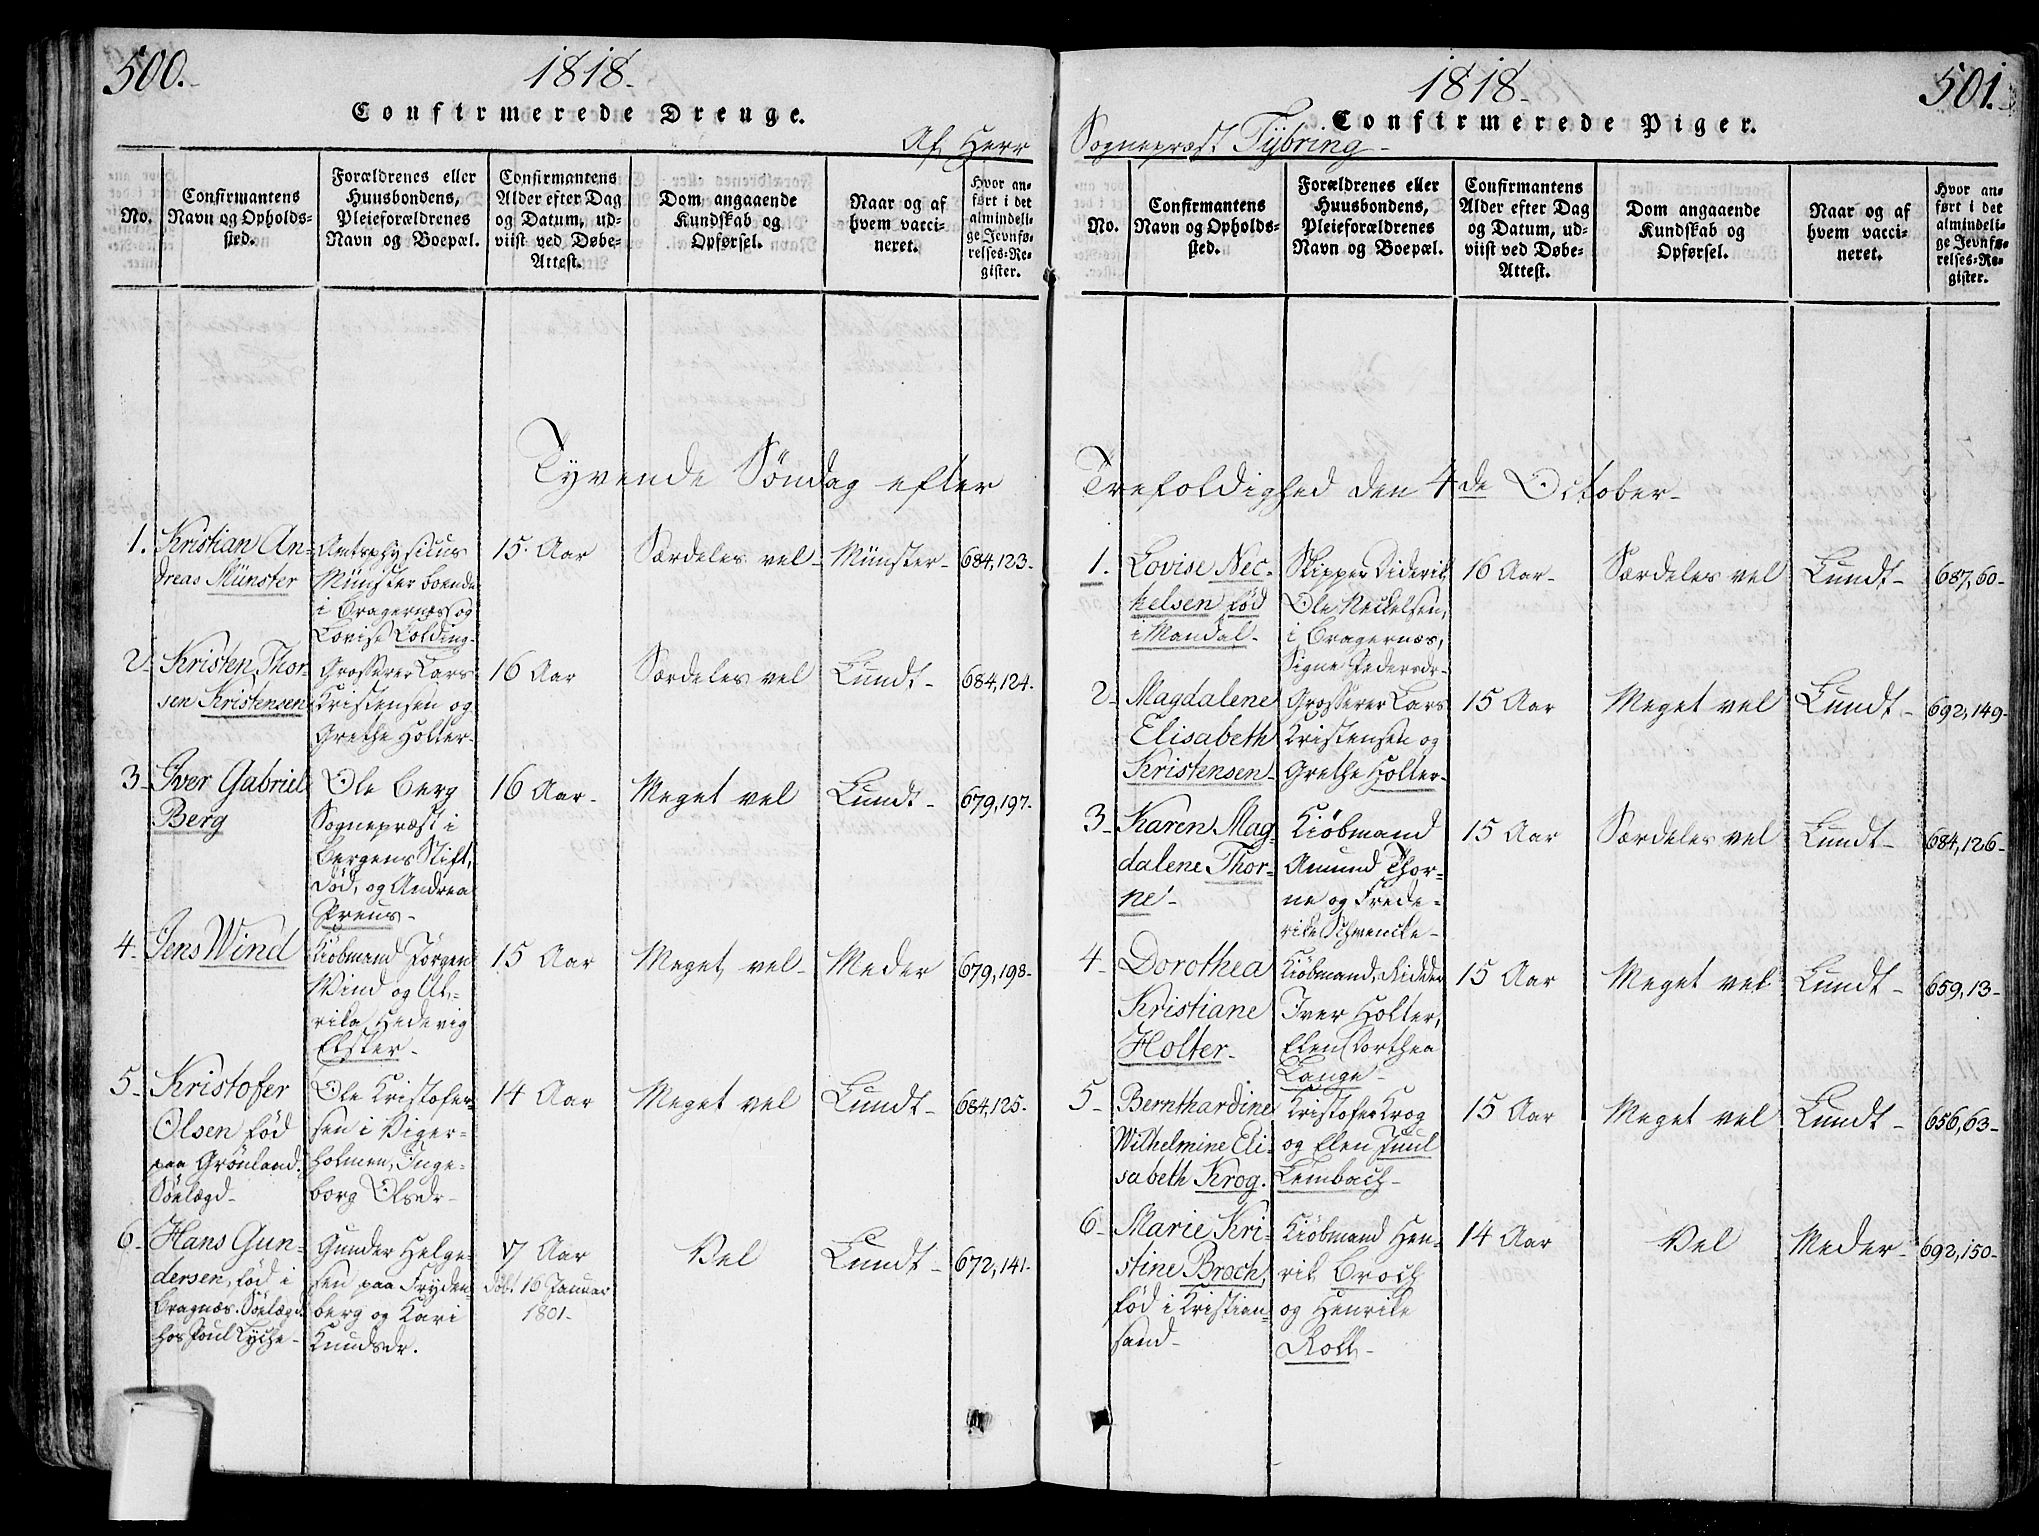 500.
1818.
Confirmerede Drenge.
Af Herr
No.
Confirmantens
Navn og Opholds-
sted.
Forældrenes eller
Huusbondens,
Pleieforældrenes
Navn og Boepæl.
Confirmantens
Alder efter Dag
og Datum, ud-
viist ved Døbe-
Attest.
Dom angaaende
Kundskab og
Opførsel.
Naar og af
hvem vacci-
neret.
Hvor an-
ført i det
almindeli-
ge Jevnfø-
relses-Re-
gister.
Tyvende Söndag efter
1. Kristian An-
dreas Münster
Amtsphysicus
Münster boende
i Bragernæs og
Lovise Colding-
15. Aar
Særdeles vel-
Münster-
684,123-
2- Kristen Thor-
sen Kristensen
Grosserer Lars
Kristensen og
Grethe Holter-
16 Aar
Særdeles vel
Lundt-
684,124-
3- Iver Gabriel
Berg
Ole Berg
Sognepræst i
Bergens Stift,
død, og Andrea
Preus-
16 Aar-
Meget vel
Lundt-
679,197-
4- Jens Wind
Kiöbmand Jörgen
Wind og Ul-
rika Hedevig
Elster-
15 Aar
Meget vel-
Meder
679,198-
5- Kristofer
Olsen född
paa Grönland.
Söelægd-
Ole Kristofer-
sen i Viger-
holmen, Inge-
borg Olsdr-
14 Aar
Meget vel
Lundt-
684,125-
6- Hans Gun-
dersen, född i
Bragnæs. Söelægd
hos Poul Lyche-
Gunder Helge-
sen paa Fryden-
berg og Kari
Knudsdr.
17 Aar
döbt 16 Januar
1801-
Vel
Lundt-
672,141-
1818-
501.
Confirmerede Piger.
Sognepræst Tybring-
No.
Confirmantens
Navn og Opholds-
sted.
Forældrenes eller
Huusbondens,
Pleieforældrenes
Navn og Boepæl.
Confirmantens
Alder efter Dag
og Datum, ud-
viist ved Døbe-
Attest.
Dom angaaende
Kundskab og
Opførsel.
Naar og af
hvem vacci-
neret.
Hvor an-
ført i det
almindeli-
ge Jevnfø-
relses-Re-
gister.
Trefoldighed den 4de October-
1. Lovise Nec-
kelsen född
i Mandal-
Skipper Diderik
Ole Neckelsen,
i Bragernæs,
Signe Pedersdr-
16 Aar-
Særdeles vel
Lundt-
687,60-
2- Magdalene
Elisabeth
Kristensen-
Grosserer Lars
Kristensen og
Grethe Holter-
15 Aar
Meget vel
Lundt-
692,149-
3- Karen Mag-
dalene Thor-
ne-
Kiöbmand
Amund Thor-
ne og Frede-
rike Schwencke-
15 Aar
Særdeles vel
Lundt-
684,126-
4- Dorothea
Kristiane
Holter-
Kiöbmand, Ridder
Iver Holter,
Elen Dorthea
Lange-
15 Aar
Meget vel
Lundt-
659,13-
5- Bernthardine
Wilhelmine Eli-
sabeth Krog.
Kristofer Krog
og Elen Juul
Lembach-
15 Aar
Meget vel
Lundt-
656,63-
6- Marie Kri-
stine Broch,
född i Kristian-
sand-
Kiöbmand Hen-
rik Broch
og Henrike
Roll-
14 Aar
Vel
Meder-
692,150-